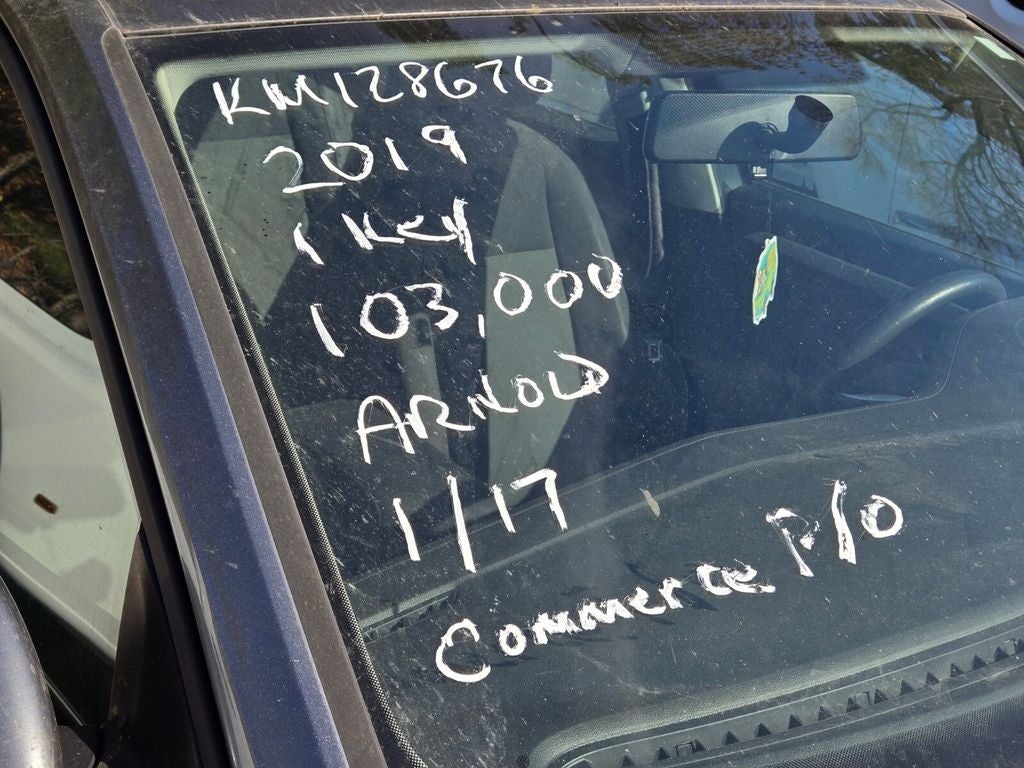 KM128676
2019
1 Key
103,000
ARNOLD
1/17
Commerce P/O